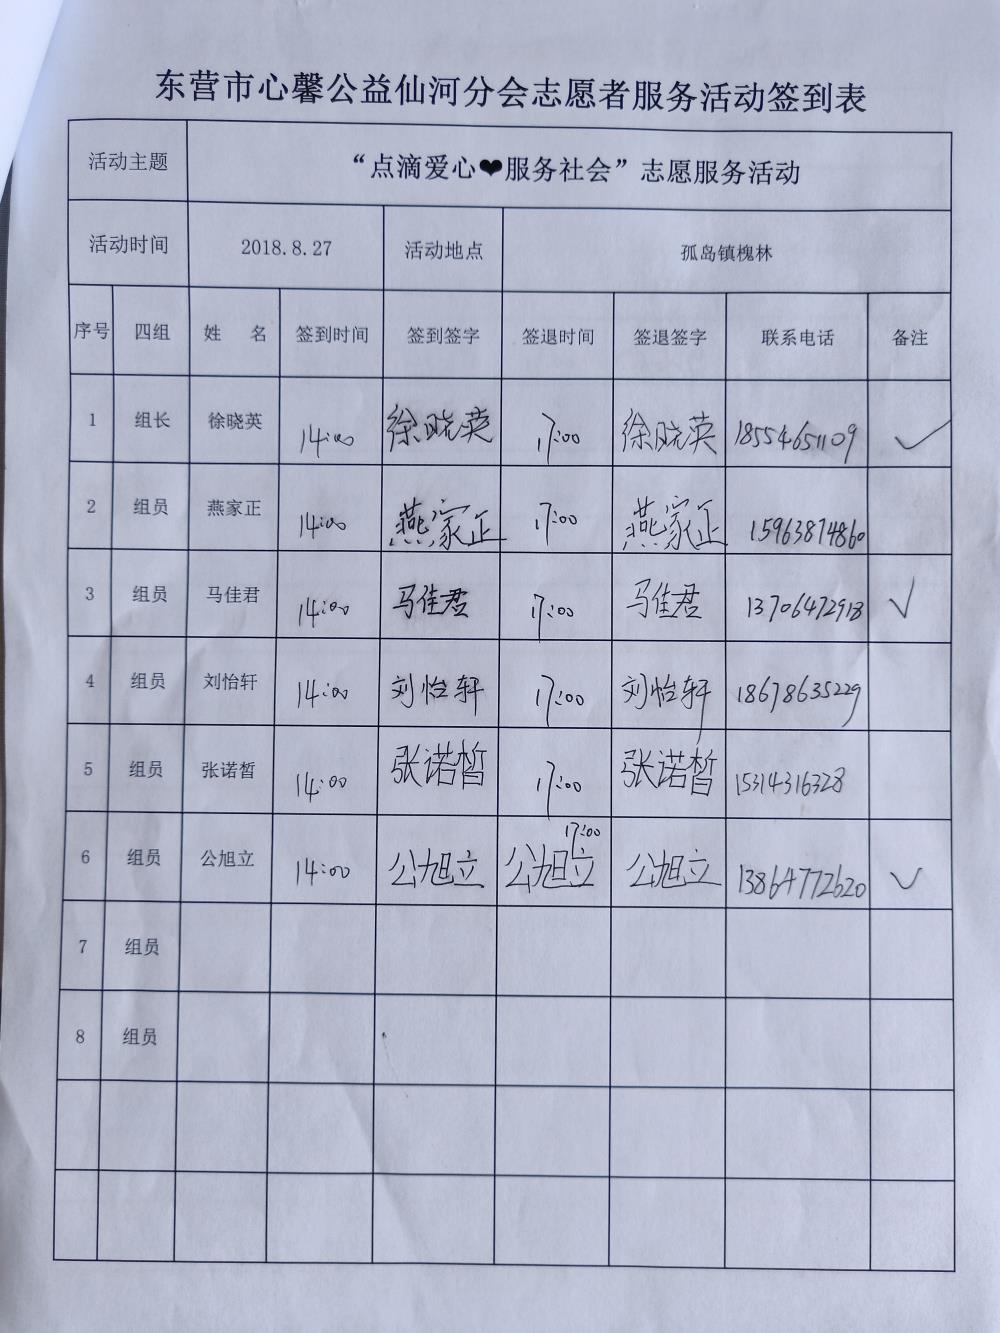 东营市心馨公益仙河分会志愿者服务活动签到表
活动主题 “点滴爱心❤服务社会”志愿服务活动
活动时间 2018.8.27 活动地点 孤岛镇槐林
序号 四组 姓 名 签到时间 签到签字 签退时间 签退签字 联系电话 备注
1 组长 徐晓英 14:00 徐晓英 17:00 徐晓英 18554651109 ✓
2 组员 燕家正 14:00 燕家正 17:00 燕家正 15963874860
3 组员 马佳君 14:00 马佳君 17:00 马佳君 13706472918 ✓
4 组员 刘怡轩 14:00 刘怡轩 17:00 刘怡轩 18678635229
5 组员 张诺皙 14:00 张诺皙 17:00 张诺皙 15314316328
17:00
6 组员 公旭立 14:00 公旭立 公旭立 公旭立 13864772620 ✓
7 组员
8 组员